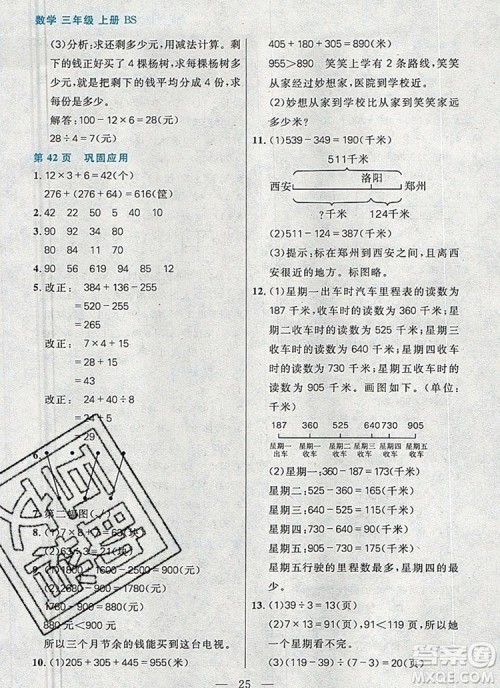 数学 三年级 上册 BS
(3)分析:求还剩多少元,用减法计算。剩
下的钱正好买了 4 棵杨树,求每棵杨树多
少元,就是把剩下的钱平均分成 4 份,求
每份是多少。
解答:100-12×6=28(元)
28÷4=7(元)
第 42 页 巩固应用
1. 12×3+6=42(个)
276+(276+64)=616(筐)
2. 42 22 50 40 10
3. 90 54 52 89 110
80 84 80 87
4. 90 60 450 90 32
5. 改正: 384+136-255
=520-255
=265
改正: 7×4+15
=28+15
=43
改正: 24÷6+25
=4+25
=29
6.
7. 第二幅图(√)
8. (1)7×8÷7=8(块)
(2)63÷3=21(块)
9. (1)2560-1660=900(元)
(2)2680-1780=900(元)
1780-880=900(元)
900+900+900=2700(元)
2700>2680
所以三个月节余的钱能买到这台电视。
10. (1)205+305+445=955(米)
405+180+305=890(米)
955>890 笑笑上学有 2 条路线,笑笑
从家经过妙想家,医院到学校近。
(2)妙想从家到学校比笑笑从家到学校
近多少米?
11. (1)539-349=190(千米)
511千米
西安 洛阳 郑州
?千米 124千米
(2)511-124=387(千米)
(3)提示:标在郑州到西安之间,且离西
安很近的地方。标图略。
12. (1)星期一出车时汽车里程表的读数为
187 千米,收车时的读数为 360 千米;星
期二收车时的读数为 525 千米;星期三
收车时的读数为 640 千米;星期四收车
时的读数为 730 千米;星期五收车时的
读数为 905 千米。画图如下。(单位:
千米)
187 360 525 640 730 905
星期一 星期一 星期二 星期三 星期四 星期五
出车 收车 收车 收车 收车 收车
(2)星期一:360-187=173(千米)
星期二:525-360=165(千米)
星期三:640-525=115(千米)
星期四:730-640=90(千米)
星期五:905-730=175(千米)
星期五行驶的里程数最多,是 175
千米。
13. (1)39÷3=13(页)
(2)7×13=91(页) 91<130
笑笑看不完。
(3)(150-39)÷3=37(页)
25
答案圈
MXQE.COM